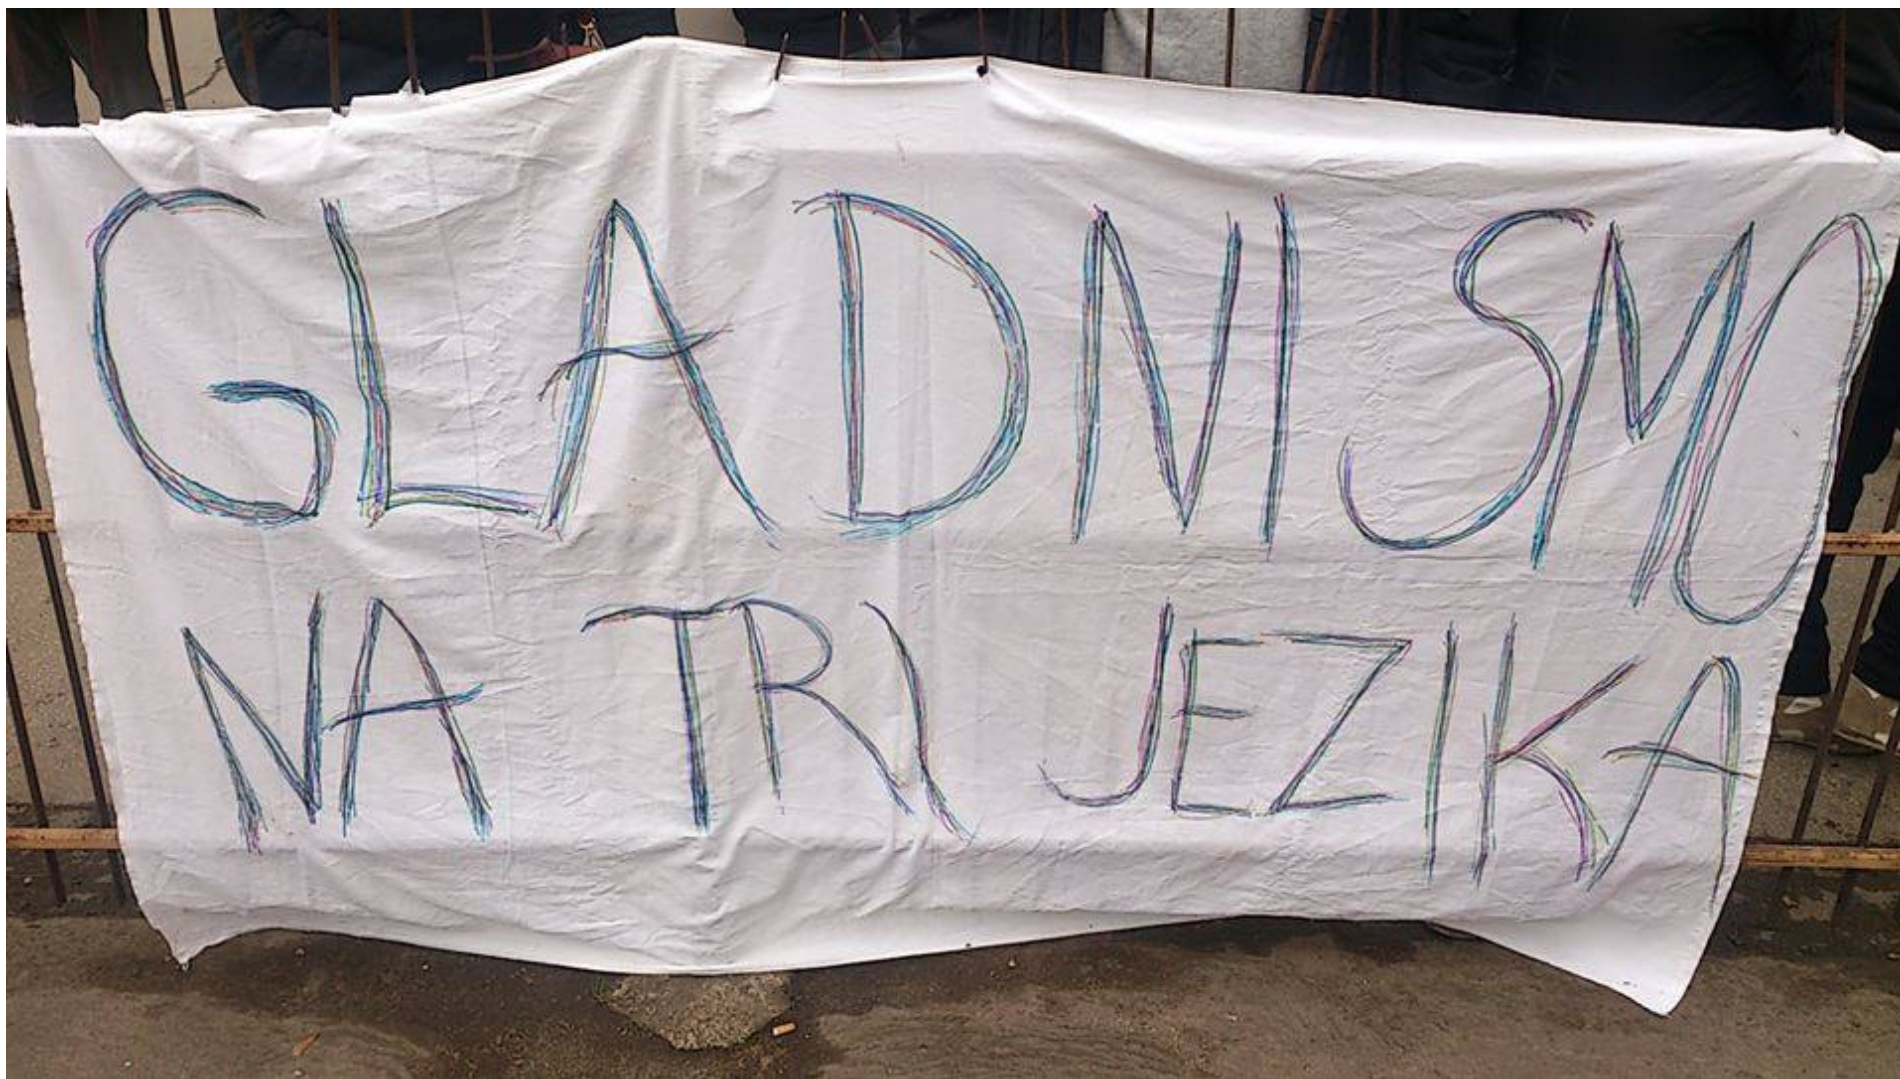 GLADNI SMO
NA TRI JEZIKA